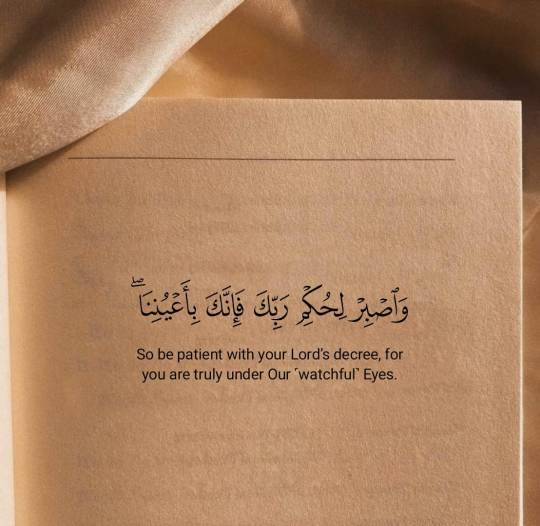 وَٱصْبِرْ لِحُكْمِ رَبِّكَ فَإِنَّكَ بِأَعْيُنِنَا ۖ
So be patient with your Lord's decree, for
you are truly under Our ˹watchful˺ Eyes.